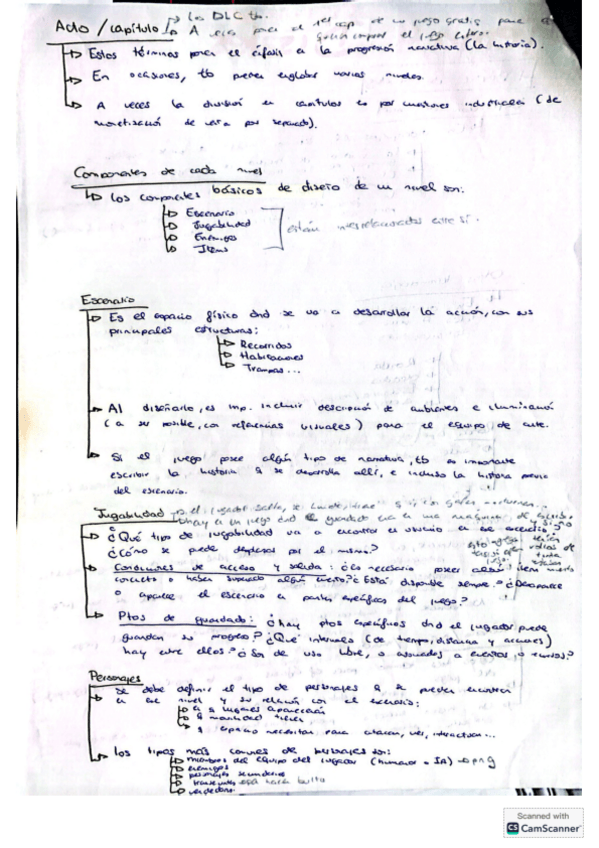 Acto / capítulo → Los DLC tb.
→ A veces para el 1er cap. de un juego gratis para
Estos términos ponen el énfasis en la progresión narrativa (la historia).
En ocasiones, tb pueden englobar varios niveles.
A veces la división en capítulos es por cuestiones industriales (de
monetización de venta por separado).
Componentes de cada nivel
Los componentes básicos de diseño de un nivel son:
Escenario
Jugabilidad
Enemigos
Items
están interrelacionados entre sí.
Escenario
Es el espacio físico dnd se va a desarrollar la acción, con sus
principales estructuras:
Recorridos
Habitaciones
Trampas...
Al diseñarlo, es imp. incluir descripción de ambientes e iluminación
(a ser posible, con referencias visuales) para el equipo de arte.
Si el juego posee algún tipo de narrativa, tb es importante
escribir la historia q se desarrolla allí, e incluso la historia previa
del escenario.
Jugabilidad → si el jugador salta, se
hay en un juego dnd el guardado era en una máquina de escribir
¿Qué tipo de jugabilidad va a encontrar el usuario en ese escenario?
¿Cómo se puede desplazar por el mismo?
Condiciones de acceso y salida: ¿Es necesario poseer algún item
concreto o haber superado algún reto? ¿Está disponible siempre? ¿Desaparece
o aparece el escenario en partes específicas del juego?
Ptos de guardado: ¿hay ptos específicos dnd el jugador puede
guardar su progreso? ¿Qué intervalos (de tiempo, distancia y acciones)
hay entre ellos? ¿Son de uso libre, o asociados a eventos o recursos?
Personajes
Se debe definir el tipo de personajes q se pueden encontrar
en ese nivel y su relación con el escenario:
en q lugares aparecerán
q movilidad tienen
q espacio necesitan para atacar, ver, interactuar...
Los tipos más comunes de personajes son:
miembros del equipo del jugador (humano o IA) → png
enemigos
personajes secundarios
transeúntes
vendedores
Scanned with
CS CamScanner